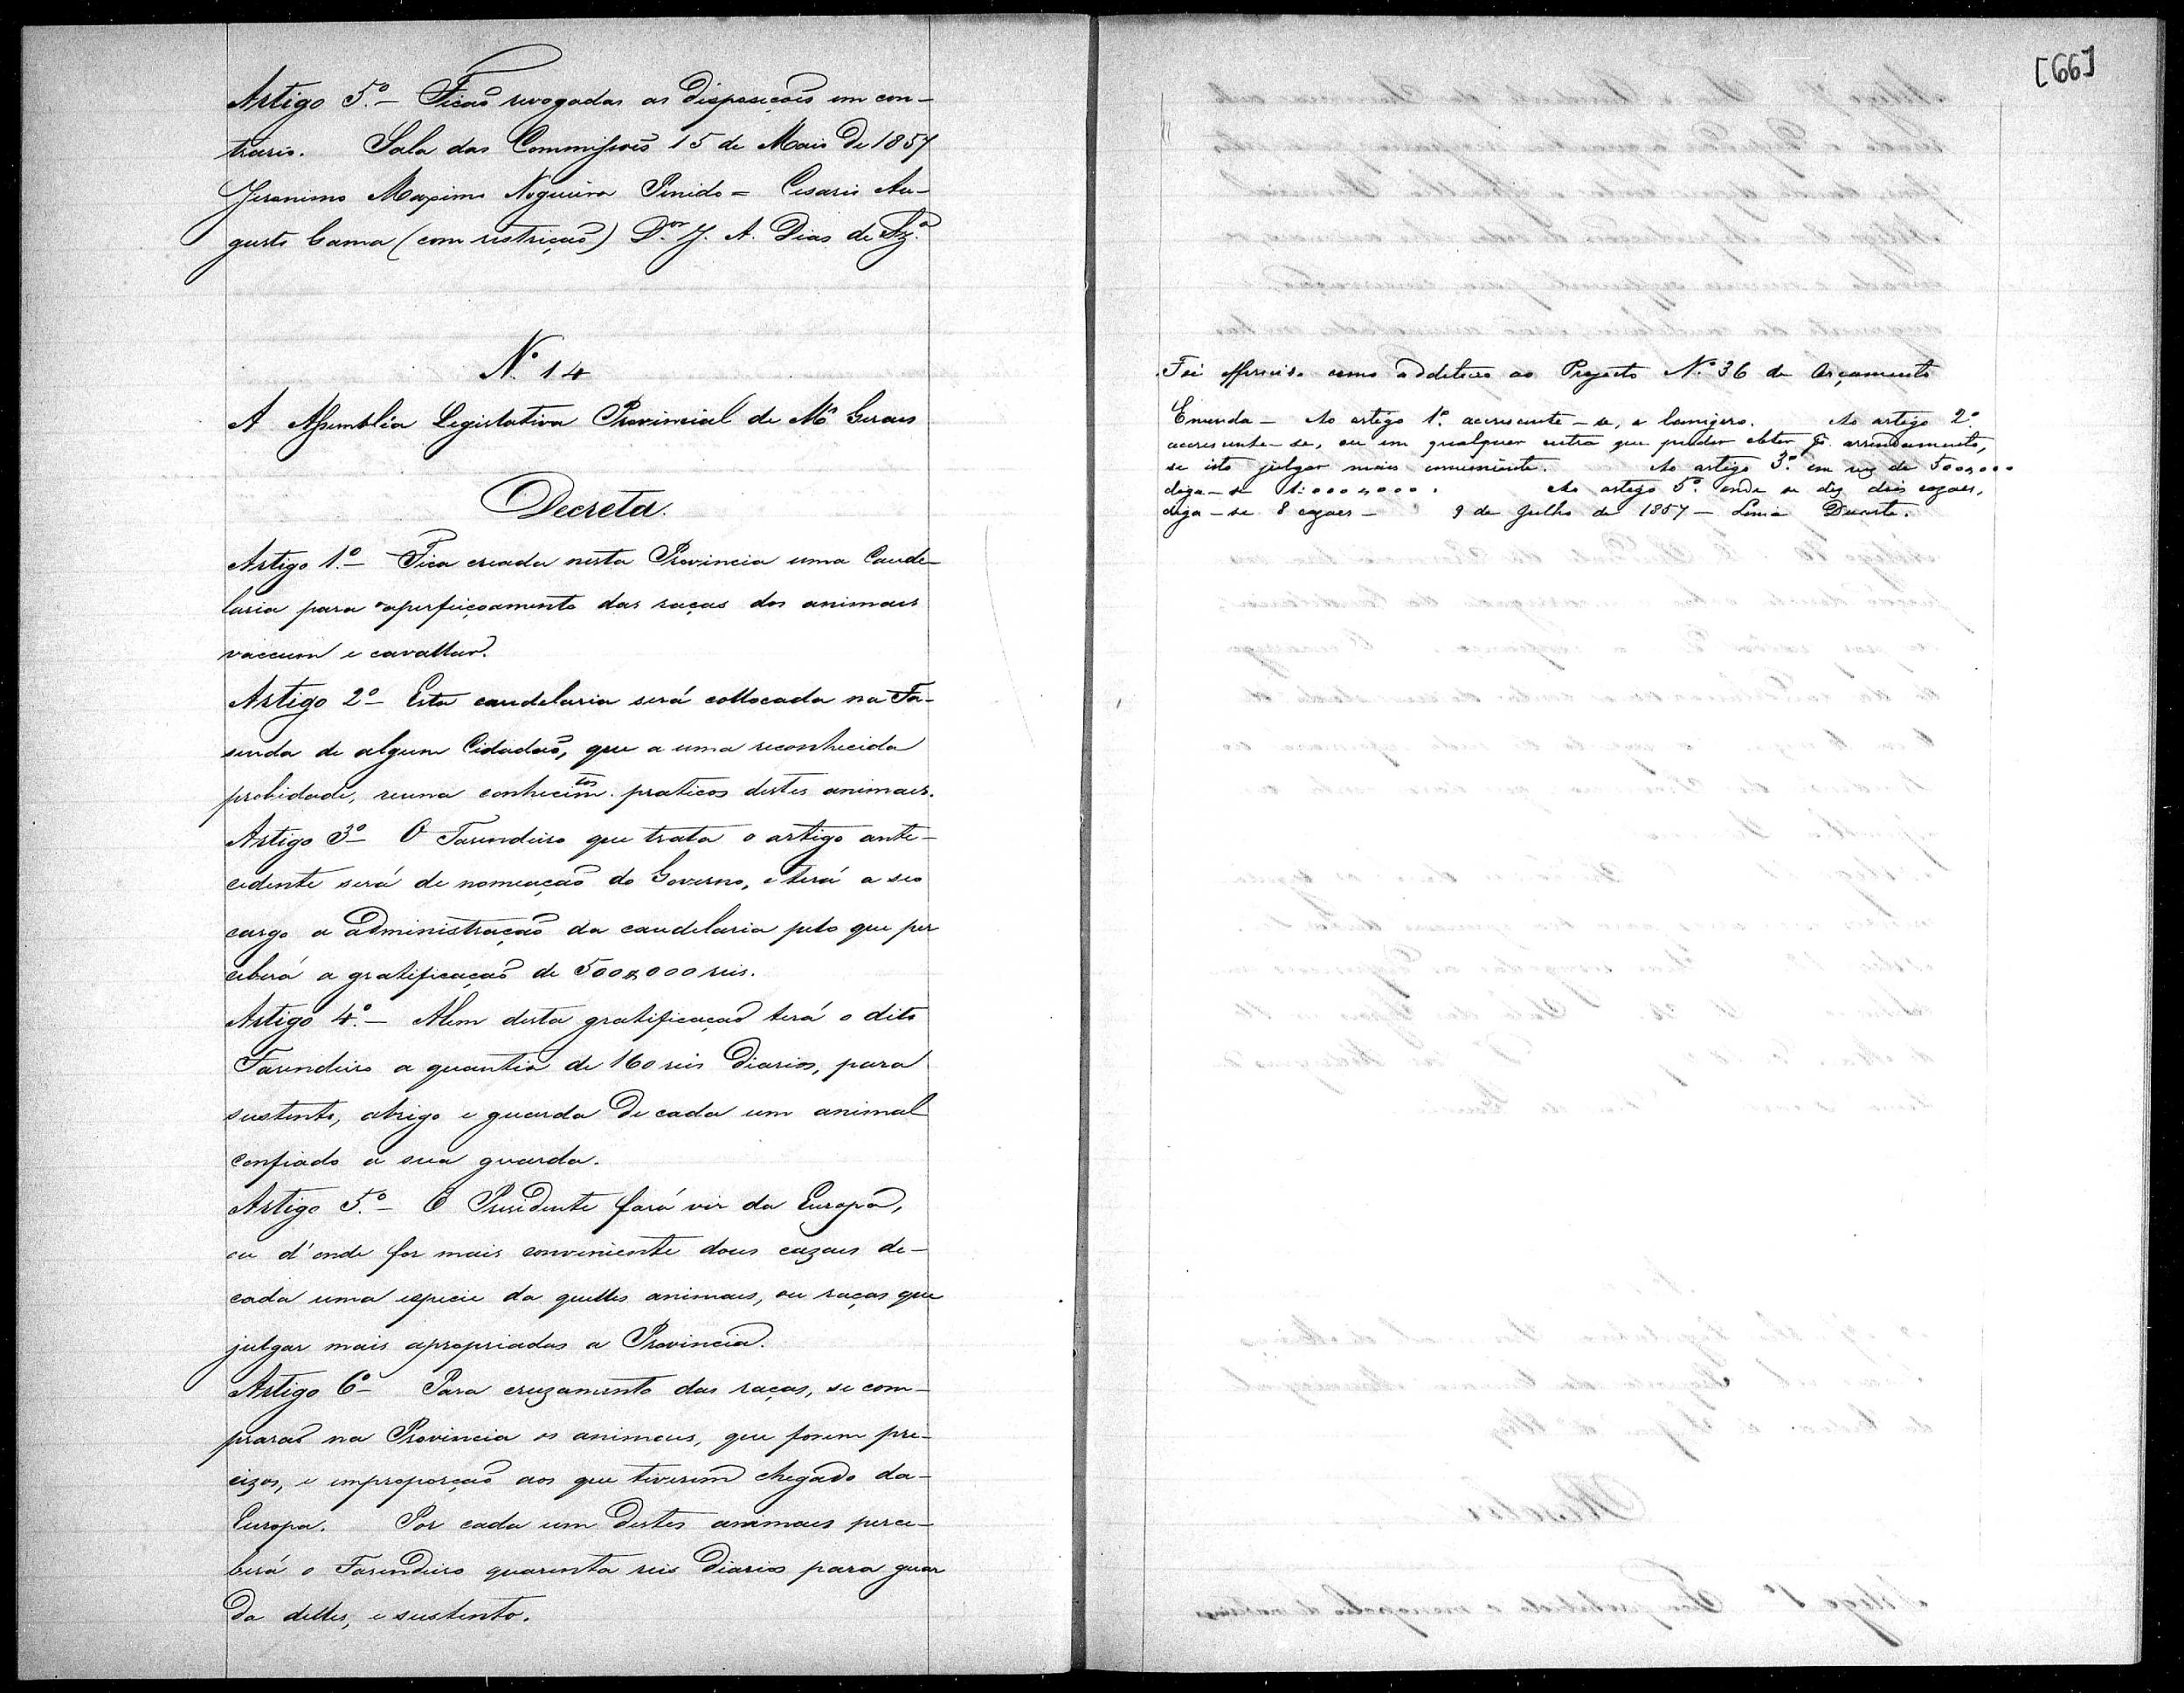 Artigo 5.º - Ficaõ revogadas as disposicoẽs em con-
trario. Sala das Commissoẽs 15 de Maio de 1857
Jeronimo Maximo Nogueira Penido = Cesario Au-
gusto Gama (com restricçaõ) D.or J. A. Dias de
N.º 14
A Assembléa Legislativa Provincial de M.s Geraes
Decreta.
Artigo 1.º - Fica creada nesta Provincia uma Caude-
laria para aperfeiçoamento das raças dos animaes
vaccum e cavallar.
Artigo 2º - Esta caudelaria será collocada na Fa-
senda de algum Cidadaõ, que a uma reconhecida
probidade, reuna conhecim.tos praticos destes animaes.
Artigo 3º - O Fasendeiro que trata o artigo ante-
cedente será de nomeaçaõ do Governo, e terá a seo
cargo a administraçaõ da caudelaria pelo que per
ceberá a gratificaçaõ de 500$000 reis.
Artigo 4.º - Alem desta gratificaçaõ terá o dito
Fasendeiro a quantia de 160 reis diarios, para
sustento, abrigo e guarda de cada um animal
confiado a sua guarda.
Artigo 5.º - O Presidente fará vir da Europa,
ou d'onde for mais conveniente dous cazaes de-
cada uma especie da quelles animaes, ou raças que
julgar mais apropriadas a Provincia.
Artigo 6º - Para cruzamento das raças, se com-
praraõ na Provincia os animaes, que forem pre-
cizos, e emproporçaõ aos que tiverem chegado da-
Europa. Por cada um destes animaes perce-
berá o Fasendeiro quarenta reis diarios para guar
da delles, e sustento.
[66]
Foi offerecido como additivo ao Projecto N.º 36 de Orçamento
Emenda - Ao artigo 1.º accrescente-se, e lanigero. Ao artigo 2.º
accrescente-se, ou em qualquer outra que puder obter p.r arrendamento,
se isto julgar mais conveniente. Ao artigo 3.º em vez de 500$000
diga-se 1:000$000. Ao artigo 5.º onde se diz dois cazaes,
diga-se 8 cazaes - 9 de Julho de 1857 - Lima Duarte.